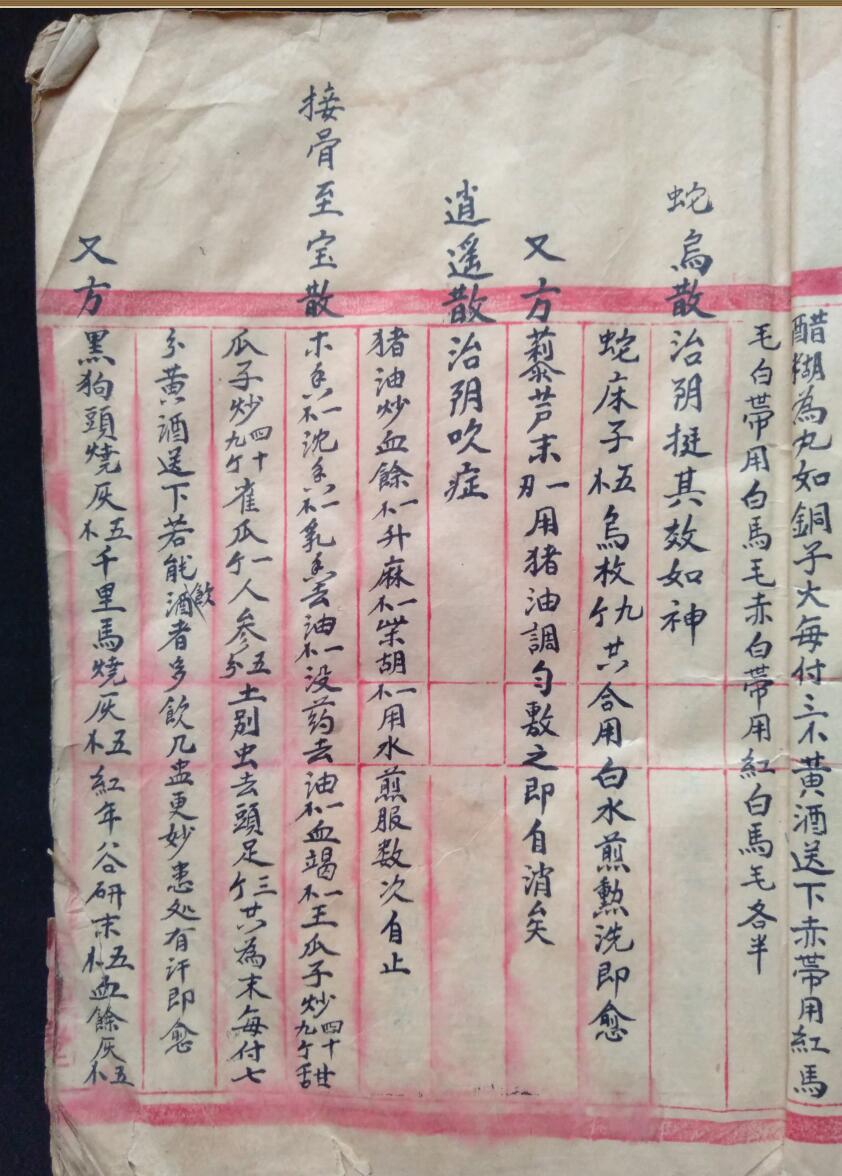 醋糊為丸如銅子大每付三不黃酒送下赤帶用紅馬
毛白帶用白馬毛赤白帶用紅白馬毛各半
蛇烏散治阴挺其效如神
蛇床子五不烏枚九个共合用白水煎勲洗即愈
又方藜芦末一刃用猪油調勻敷之即自消矣
逍遥散治阴吹症
猪油炒血餘一不升麻一不柴胡一不用水煎服数次自止
接骨至宝散木香一不沈香一不乳香去油一不没药去油一不血竭一不王瓜子炒四十九个甜
瓜子炒四十九个雀瓜一个人参五分土别虫去頭足三个共為末每付七
分黄酒送下若能飲酒者多飲几盅更妙患处有汗即愈
又方黑狗頭燒灰五不千里馬燒灰五不紅年谷研末五不血餘灰五不